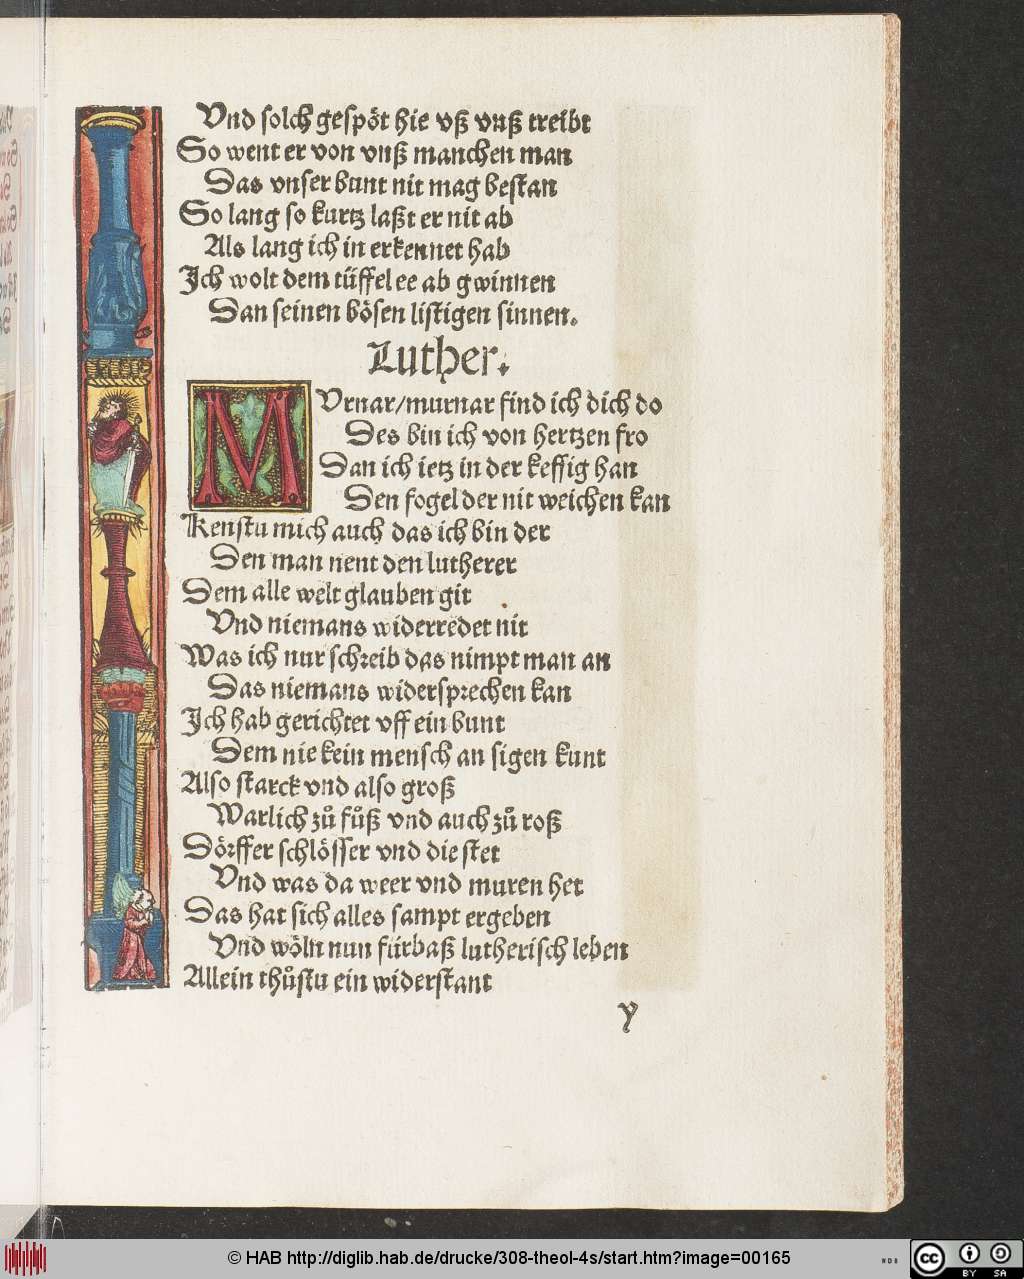 Vnd solch gespöt hie vß vnß treibt
So went er von vnß manchen man
Das vnser bunt nit mag bestan
So lang so kurtz laßt er nit ab
Als lang ich in erkennet hab
Ich wolt dem tüffel ee ab gwinnen
Dan seinen bösen listigen sinnen.
Luther.
MVrnar/murnar find ich dich do
Des bin ich von hertzen fro
Dan ich ietz in der keffig han
Den fogel der nit weichen kan
Kenstu mich auch das ich bin der
Den man nent den lutherer
Dem alle welt glauben git
Vnd niemans widerredet nit
Was ich nur schreib das nimpt man an
Das niemans widersprechen kan
Ich hab gerichtet vff ein bunt
Dem nie kein mensch an sigen kunt
Also starck vnd also groß
Warlich zů fůß vnd auch zů roß
Dörffer schlösser vnd die stet
Vnd was da weer vnd muren het
Das hat sich alles sampt ergeben
Vnd wöln nun fürbaß lutherisch leben
Allein thůstu ein widerstant
y
© HAB http://diglib.hab.de/drucke/308-theol-4s/start.htm?image=00165
WDB
cc
BY SA